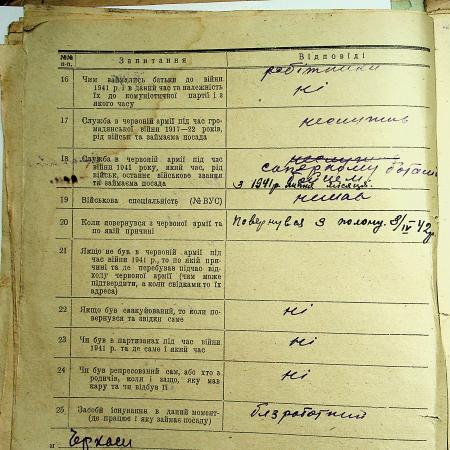 №№ п-п.
Запитання
Відповіді
16
Чим займались батьки до війни
1941 р. і в даний час та належність
їх до комуністичної партії і з
якого часу
робітники
ні
17
Служба в червоній армії під час гро-
мадянської війни 1917—22 років,
рід військ та займаема посада
неслужив
18
Служба в червоній армії під час
війни 1941 року, який час, рід
військ, останнє військове звання
та займаема посада
саперному
з 1941 р. липня місяця
19
Військова спеціяльність (№ ВУС)
немає
20
Коли повернувся з червоної армії та
по якій причині
Повернувся з полону. 9/IV 42 р
21
Якщо не був в червоній армії під
час війни 1941 р., то по якій при-
чині та де перебував підчас від-
ходу червоної армії (чим може
підтвердити, а коли свідками то їх
адреса)
22
Якщо був евакуйований, то коли по-
вернувся та звідки саме
ні
23
Чи був в партизанах під час війни
1941 р. та де саме і який час
ні
24
Чи був репресований сам, або хто з
родичів, коли і защо, яку мав
кару та чи відбув її
ні
25
Засоби існування в даний момент-
(де працює і яку займає посаду)
безработний
м
Черкаси